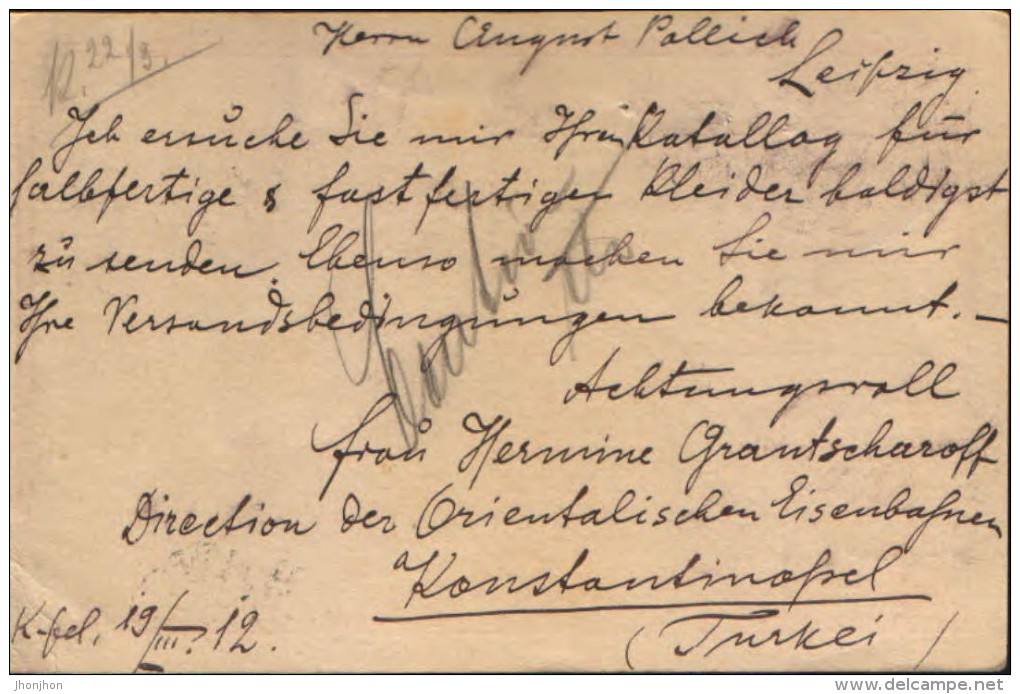 B. 22/3.
Herrn August Pollich
Leipzig.
Ich ersuche Sie mir Ihren Katallog für
halbfertige & fast fertigen Kleider baldigst
zu senden. Ebenso machen Sie mir
Ihre Versandsbedingungen bekannt. —
Achtungsvoll
Frau Hermine Grantscharoff
Direction der Orientalischen Eisenbahnen
Konstantinopel
K-pel, 19/III. 12.
(Turkei)
jhonjhon
www.delcampe.net